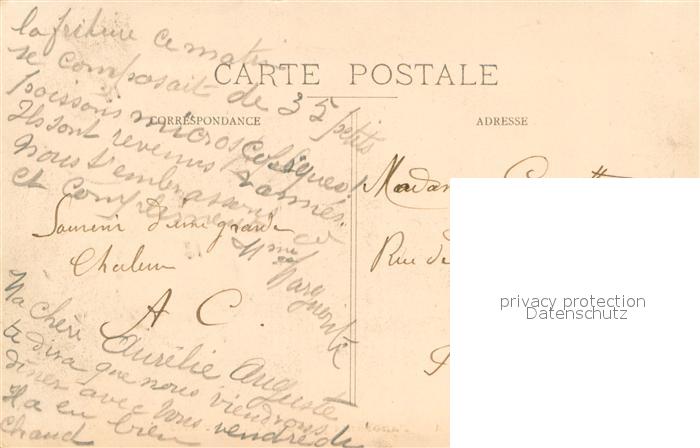 la friture ce matin
se composait de 35 petits
CARTE POSTALE
poissons microscopiques!
CORRESPONDANCE
ADRESSE
Ils sont revenus vannés.
Nous t'embrassons
et
Souvenir d'une grande
Chaleur
A C.
Mme Marguerite
Ma chère Aurélie Auguste
te dira que nous viendrons
dîner avec vous vendredi
Il a eu bien
chaud
Madame
Rue de
privacy protection
Datenschutz